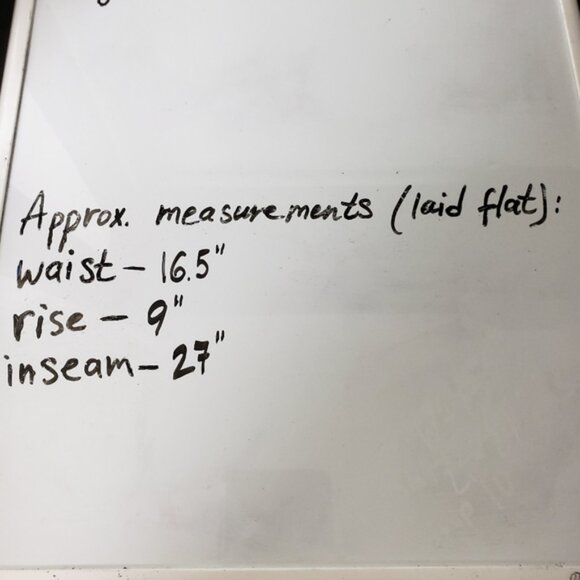 Approx. measurements (laid flat):
waist - 16.5"
rise - 9"
inseam - 27"